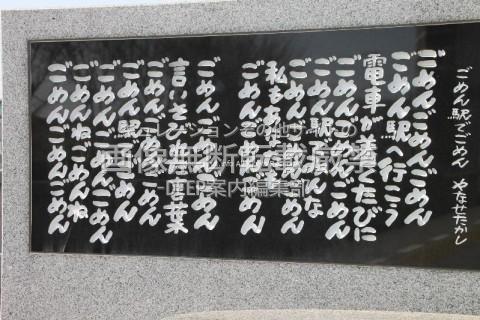 ごめん駅でごめん　やなせたかし
ごめんごめんごめん
ごめん駅へ行こう
電車が着くたびに
ごめんごめんごめん
ごめん駅はみんな
ごめんごめんごめん
私もあなた
ごめんごめんごめん
ごめんごめんごめん
言いそびれた言葉
ごめんごめんごめん
ごめん駅でごめん
ごめんごめんごめん
ごめんねごめんね
ごめんごめんごめん
画像無断転載禁
DEEP案内編集部